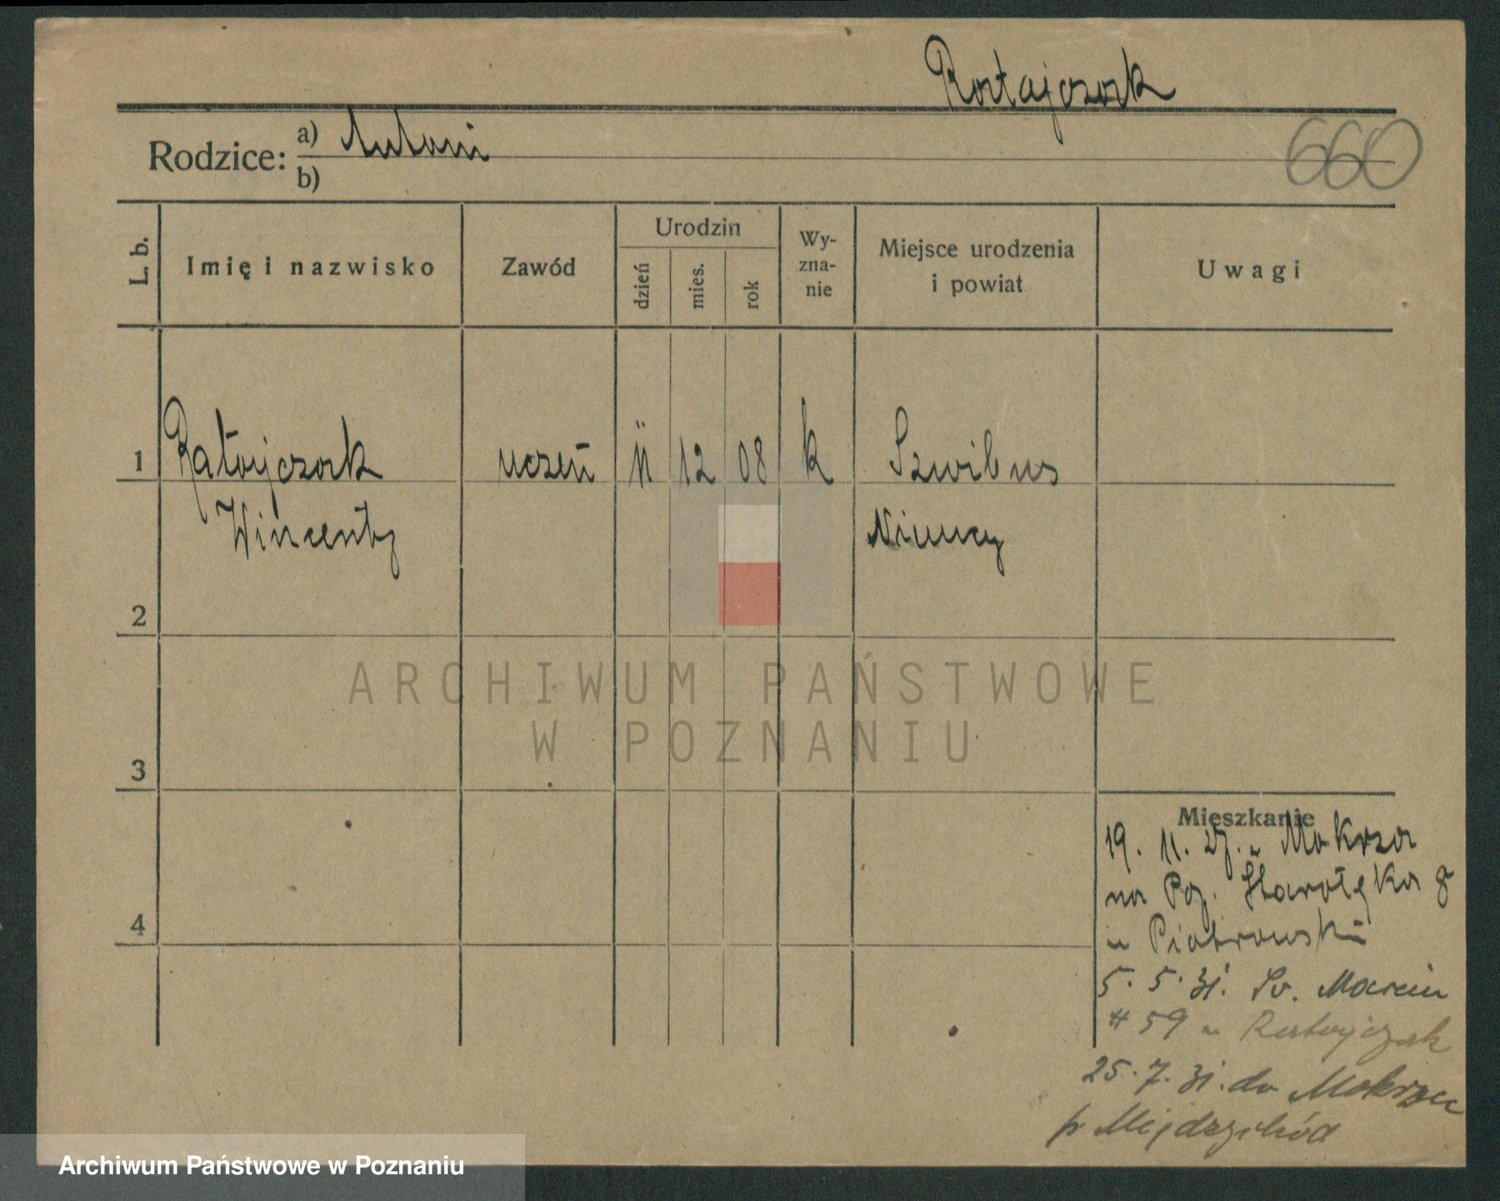 Ratajczak
660
Rodzice: a) Antoni
b)
L. b.
Imię i nazwisko
Zawód
Urodzin
dzień
mies.
rok
Wy-
zna-
nie
Miejsce urodzenia
i powiat
Uwagi
1 Ratajczak uczeń 11 12 08 k Szwibus
Wincenty Niemcy
2
3
4
ARCHIWUM PAŃSTWOWE
W POZNANIU
Mieszkanie
19. 11. 27. z Mokrza
na Poz. Starołęka 8
u Piotrowski
5. 5. 31. Św. Marcin
59 u Ratajczak
25. 7. 31. do Mokrzec
p. Międzychód
Archiwum Państwowe w Poznaniu